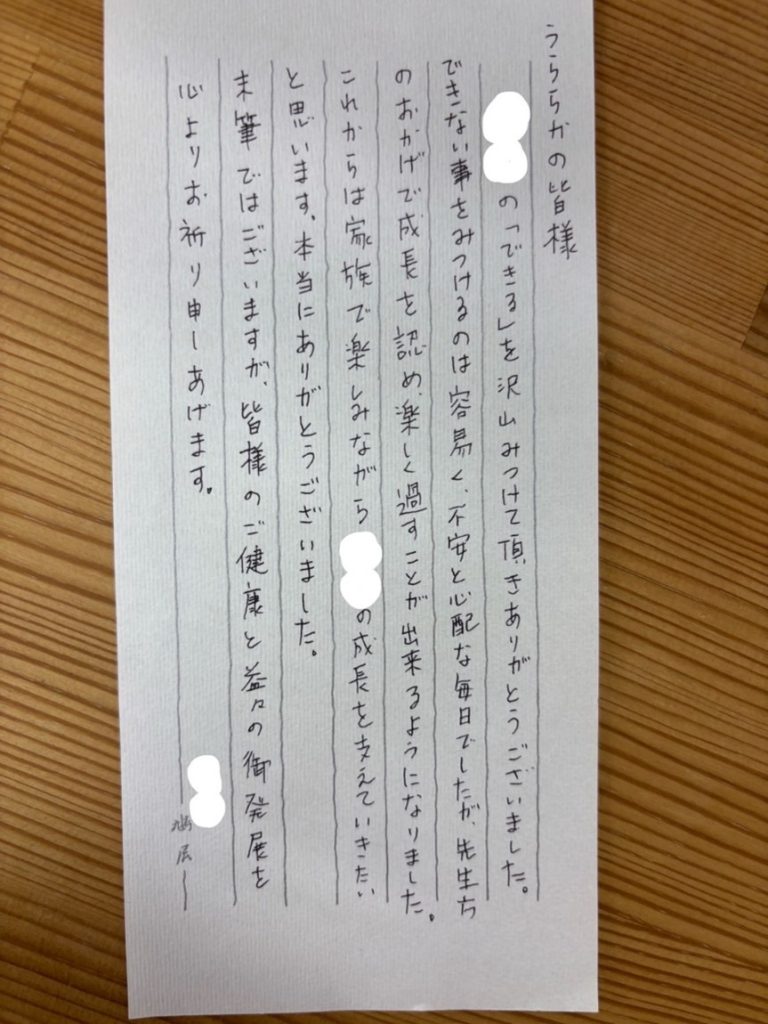 うららかの皆様
の「できる」を沢山みつけて頂きありがとうございました。
できない事をみつけるのは容易く、不安と心配な毎日でしたが、先生方
のおかげで成長を認め、楽しく過すことが出来るようになりました。
これからは家族で楽しみながら の成長を支えていきたい
と思います。本当にありがとうございました。
末筆ではございますが、皆様のご健康と益々の御発展を
心よりお祈り申しあげます。